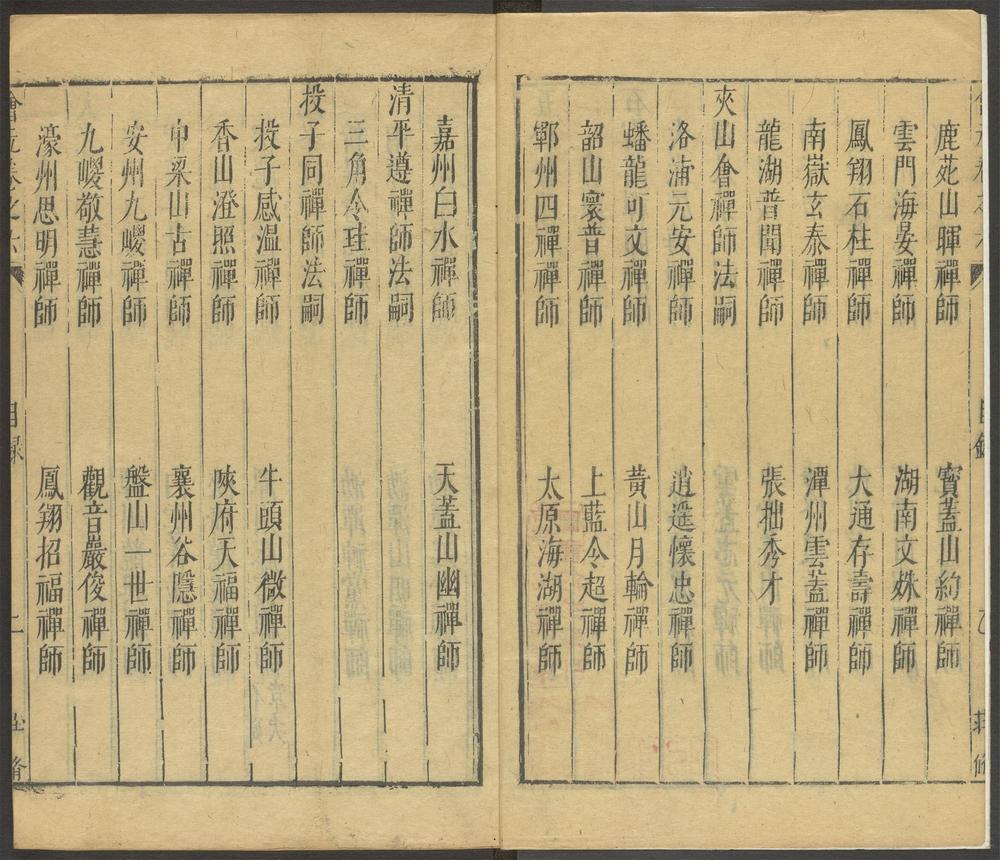 鹿苑山暉禪師　寳蓋山約禪師
雲門海晏禪師　湖南文姝禪師
鳳翔石柱禪師　大通存壽禪師
南嶽玄泰禪師　潭州雲蓋禪師
龍湖普聞禪師　張拙秀才
夾山會禪師法嗣
洛浦元安禪師　逍遥懷忠禪師
蟠龍可文禪師　黃山月輪禪師
韶山寰普禪師　上藍令超禪師
鄆州四禪禪師　太原海湖禪師
嘉州白水禪師　天蓋山幽禪師
清平遵禪師法嗣
三角令珪禪師
投子同禪師法嗣
投子感温禪師　牛頭山微禪師
香山澄照禪師　陜府天福禪師
中梁山古禪師　襄州谷隱禪師
安州九嵕禪師　盤山二世禪師
九嵕敬慧禪師　觀音巖俊禪師
濠州思明禪師　鳳翔招福禪師
目録　二